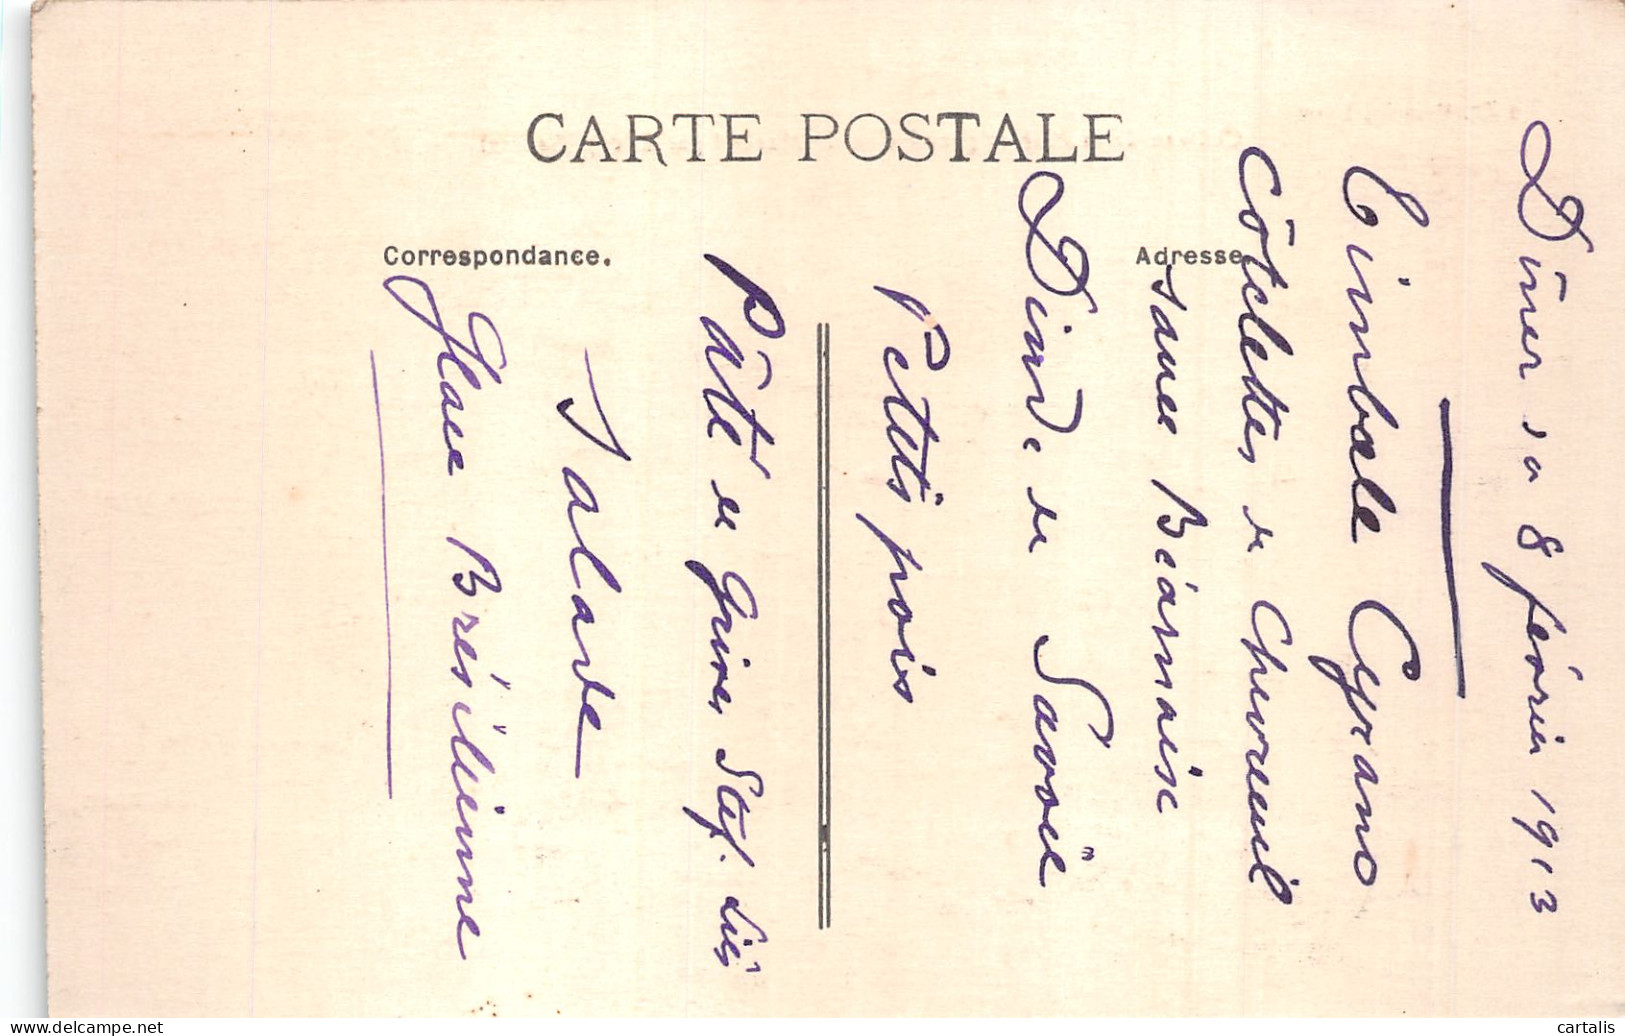 CARTE POSTALE
Correspondance.
Adresse
Dîner du 8 février 1913
Timbale Cyrano
Côtelettes de Chevreuil
sauce Béarnaise
Dinde de Savoie
Petits pois
Pâté de Grives
Salade
Glace Brésilienne
cartalis